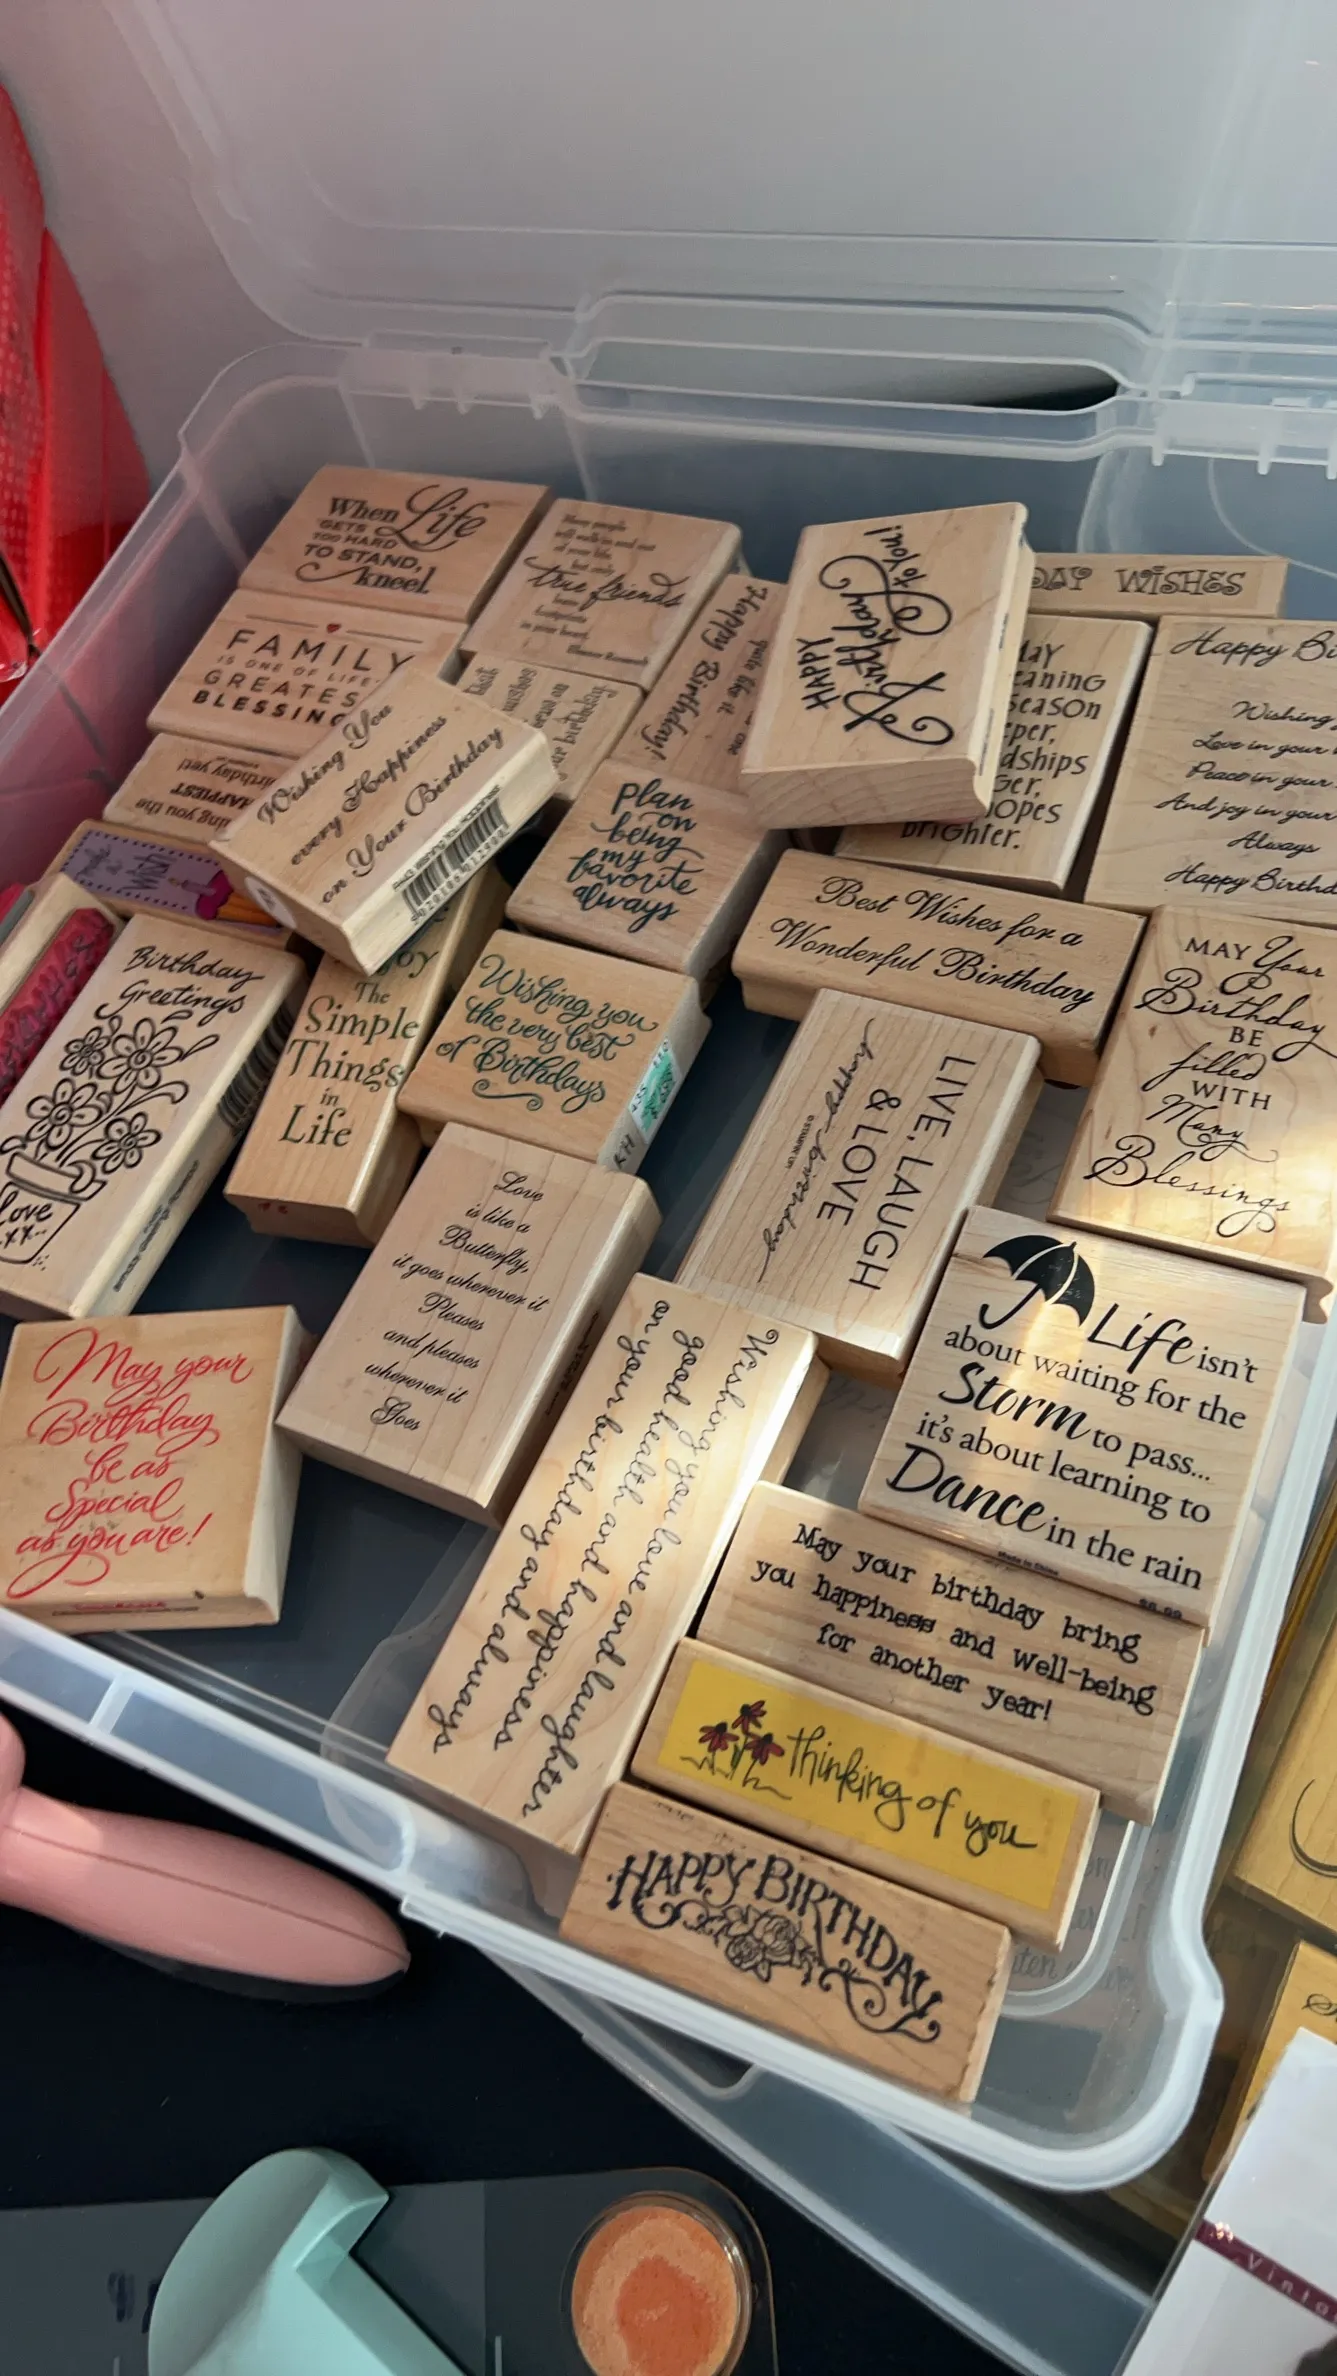 When Life
GETS
TOO HARD
TO STAND,
kneel.
Many people
will walk in and out
of your life
but only
true friends
leave
footprints
in your heart.
Eleanor Roosevelt
FAMILY
IS ONE OF LIFE
GREATES
BLESSING
Wishing You
every Happiness
on Your Birthday
Best
wishes
on
your birthday
Happy Birthday!
quite like it
HAPPY
Birthday
To You!
DAY WISHES
eaning
Season
dships
opes
brighter.
Happy Bi
Wishing
Love in your
Peace in your
And joy in your
Always
Happy Birthd
HAPPIEST
birthday yet!
Wish
Plan
on
being
my
favorite
always
Best Wishes for a
Wonderful Birthday
MAY Your
Birthday
BE
filled
WITH
Many
Blessings
Birthday
Greetings
Love
xx..
The
Simple
Things
in
Life
Wishing you
the very best
of Birthdays
LIVE, LAUGH
& LOVE
happy birthday
Love
is like a
Butterfly,
it goes wherever it
Pleases
and pleases
wherever it
Goes
Life isn't
about waiting for the
Storm to pass...
it's about learning to
Dance in the rain
$6.99
May your
Birthday
be as
Special
as you are!
Wishing you love and laughter
good health and happiness
on your birthday and always
May your birthday bring
you happiness and well-being
for another year!
thinking of you
HAPPY BIRTHDAY